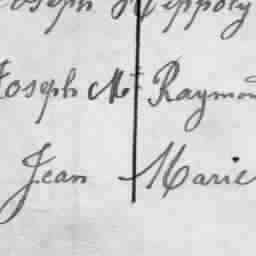 Joseph Hippoly
Joseph Mt Raymon
Jean Marie